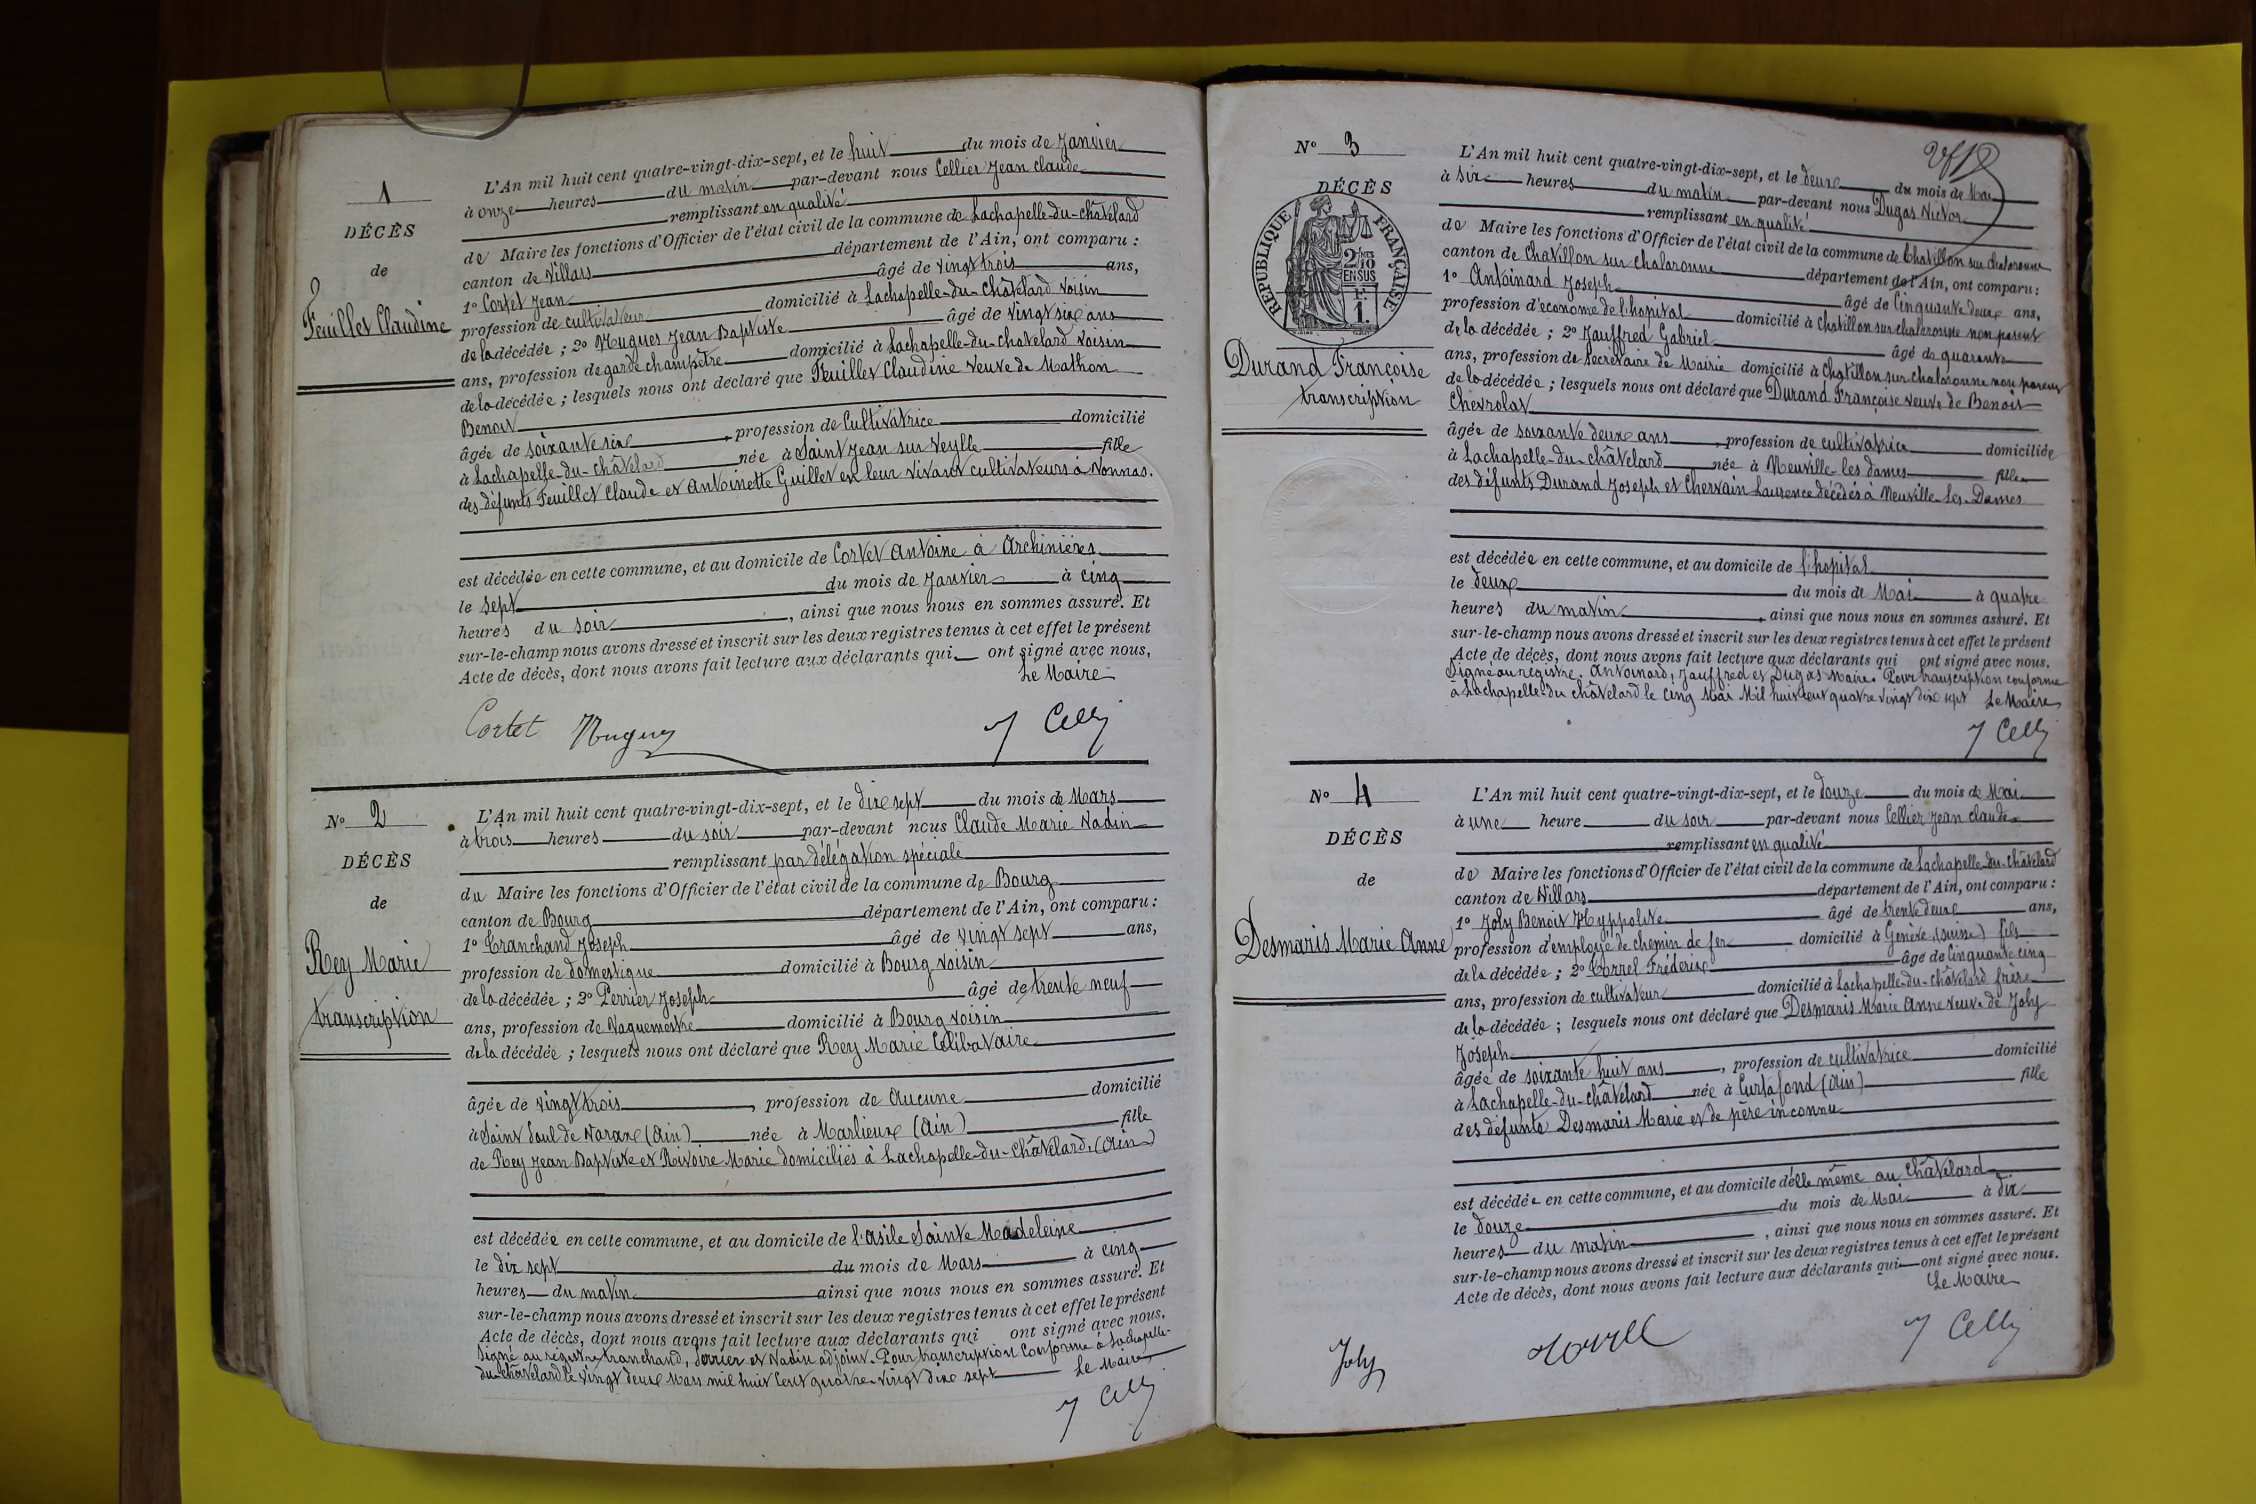 1
DÉCÈS
de
Feuillet Claudine
L'An mil huit cent quatre-vingt-dix-sept, et le huit du mois de Janvier
à onze heures du matin par-devant nous Cellier Jean Claude
remplissant en qualité
de Maire les fonctions d'Officier de l'état civil de la commune de Lachapelle-du-châtelard
canton de Villars département de l'Ain, ont comparu :
1º Cortet Jean âgé de vingt trois ans,
profession de cultivateur domicilié à Lachapelle-du-Châtelard voisin
de la décédée ; 2º Hugues Jean Baptiste âgé de vingt six ans
ans, profession de garde champêtre domicilié à Lachapelle-du-chatelard voisin
de la décédée ; lesquels nous ont déclaré que Feuillet Claudine veuve de Mathon
Benoit
âgée de soixante six, profession de Cultivatrice domicilié
à Lachapelle-du-châtelard née à Saint Jean sur Veyle fille
des défunts Feuillet Claude et Antoinette Guillet en leur vivant cultivateurs à Vonnas.
est décédée en cette commune, et au domicile de Cortet Antoine à Archinières
le sept du mois de Janvier à cinq
heures du soir, ainsi que nous nous en sommes assuré. Et
sur-le-champ nous avons dressé et inscrit sur les deux registres tenus à cet effet le présent
Acte de décès, dont nous avons fait lecture aux déclarants qui ont signé avec nous,
Le Maire
Cortet Hugues J Celli
Nº 2
DÉCÈS
de
Rey Marie
transcription
L'An mil huit cent quatre-vingt-dix-sept, et le dix sept du mois de Mars
à trois heures du soir par-devant nous Claude Marie Nadin
remplissant par délégation spéciale
du Maire les fonctions d'Officier de l'état civil de la commune de Bourg
canton de Bourg département de l'Ain, ont comparu :
1º Tranchand Joseph âgé de vingt sept ans,
profession de domestique domicilié à Bourg voisin
de la décédée ; 2º Perrier Joseph âgé de trente neuf
ans, profession de Vaguemestre domicilié à Bourg voisin
de la décédée ; lesquels nous ont déclaré que Rey Marie Célibataire
âgée de vingt trois, profession de Aucune domicilié
à Saint Paul de Varax (Ain) née à Marlieux (Ain) fille
de Rey Jean Baptiste et Rivoire Marie domiciliés à Lachapelle-du-Châtelard, (Ain)
est décédée en cette commune, et au domicile de l'asile Sainte Madeleine
le dix sept du mois de Mars à cinq
heures du matin ainsi que nous nous en sommes assuré. Et
sur-le-champ nous avons dressé et inscrit sur les deux registres tenus à cet effet le présent
Acte de décès, dont nous avons fait lecture aux déclarants qui ont signé avec nous.
Signé au registre tranchand, Perrier et Nadin adjoint. Pour transcription conforme à Lachapelle-
du-Châtelard le vingt deux Mars mil huit Cent quatre-vingt dix sept Le Maire
J Celli
Nº 3
DÉCÈS
RÉPUBLIQUE FRANÇAISE
2/10 EN SUS
1
Durand Françoise
transcription
L'An mil huit cent quatre-vingt-dix-sept, et le deux du mois de Mai
à six heures du matin par-devant nous Dugas Victor
remplissant en qualité
de Maire les fonctions d'Officier de l'état civil de la commune de Chatillon sur chalaronne
canton de Chatillon sur chalaronne département de l'Ain, ont comparu :
1º Antoinard Joseph âgé de Cinquante deux ans,
profession d'econome de l'hopital domicilié à Chatillon sur chalaronne non parent
de la décédée ; 2º Jauffred Gabriel âgé de quarante
ans, profession de Secretaire de Mairie domicilié à Chatillon sur chalaronne non parent
de la décédée ; lesquels nous ont déclaré que Durand Françoise veuve de Benoit
Chevrolat
âgée de soixante deux ans, profession de cultivatrice domiciliée
à Lachapelle-du-châtelard née à Neuville les dames fille
des défunts Durand Joseph et Chervain Laurence décédés à Neuville-Les-Dames
est décédée en cette commune, et au domicile de l'hopital
le deux du mois de Mai à quatre
heures du matin, ainsi que nous nous en sommes assuré. Et
sur-le-champ nous avons dressé et inscrit sur les deux registres tenus à cet effet le présent
Acte de décès, dont nous avons fait lecture aux déclarants qui ont signé avec nous.
Signé au registre. Antoinard, Jauffred et Dugas Maire. Pour transcription conforme
à Lachapelle-du châtelard le cinq Mai Mil huit cent quatre vingt dix sept Le Maire
J Celli
Nº 4
DÉCÈS
de
Desmaris Marie Anne
L'An mil huit cent quatre-vingt-dix-sept, et le douze du mois de Mai
à une heure du soir par-devant nous Cellier Jean claude
remplissant en qualité
de Maire les fonctions d'Officier de l'état civil de la commune de Lachapelle-du-Châtelard
canton de Villars département de l'Ain, ont comparu :
1º Joly Benoit Hyppolite âgé de trente deux ans,
profession d'employé de chemin de fer domicilié à Genève (Suisse) fils
de la décédée ; 2º Correl Fréderic âgé de Cinquante cinq
ans, profession de cultivateur domicilié à Lachapelle-du-châtelard frère
de la décédée ; lesquels nous ont déclaré que Desmaris Marie Anne veuve de Joly
Joseph
âgée de soixante huit ans, profession de cultivatrice domicilié
à Lachapelle-du-châtelard née à Curtafond (Ain) fille
des défunts Desmaris Marie et de père inconnu
est décédée en cette commune, et au domicile d'elle même au Châtelard
le douze du mois de Mai à dix
heures du matin, ainsi que nous nous en sommes assuré. Et
sur-le-champ nous avons dressé et inscrit sur les deux registres tenus à cet effet le présent
Acte de décès, dont nous avons fait lecture aux déclarants qui ont signé avec nous.
Le Maire
Joly J Celli